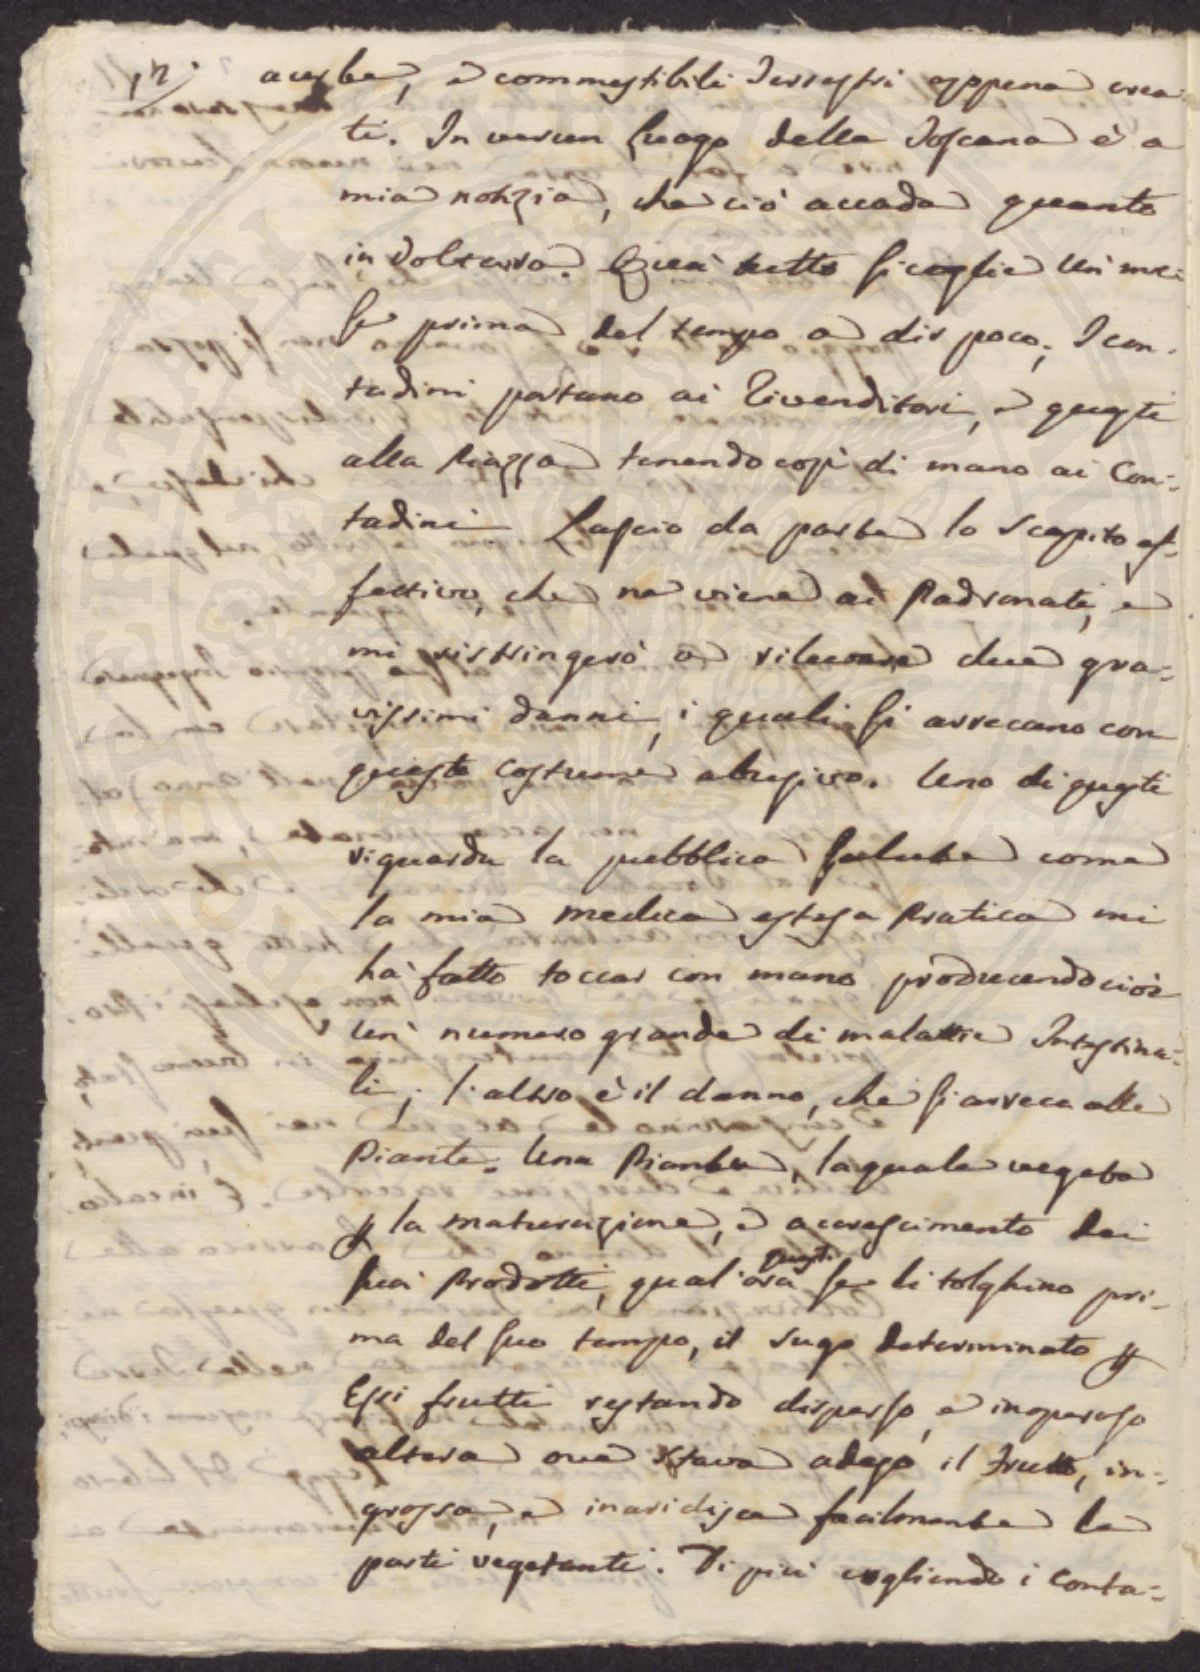 acerbe, e commestibili Terrestri appena crea-
ti. In verun Luogo della Toscana è a
mia notizia, che ciò accada quanto
in Volterra. Quà tutto si coglie un me-
se prima del tempo a dir poco; I con-
tadini portano ai Rivenditori, e questi
alla Piazza tenendo così di mano ai Con-
tadini Lascio da parte lo Scapito ef-
fettivo, che ne viene ai Padronati, e
mi ristringerò a rilevare due gra-
vissimi danni, i quali si arrecano con
questo Costume abusivo. Uno di questi
riguarda la pubblica Salute come
la mia medica estesa Pratica mi
hà fatto toccar con mano producendo ciò
un' numero grande di malattie Intestina-
li; l'altro è il danno, che si arreca alle
Piante. Una Pianta, la quale vegeta
p la maturazione, e accrescimento dei
suoi Prodotti, qual'ora questi se li tolghino pri-
ma del suo tempo, il sugo determinato p
Essi frutti restando disperso, e inoperoso
altera ove stava adeso il Frutto, in-
grossa, e inaridisce facilmente le
parti vegetanti. Di più cogliendo i Conta-